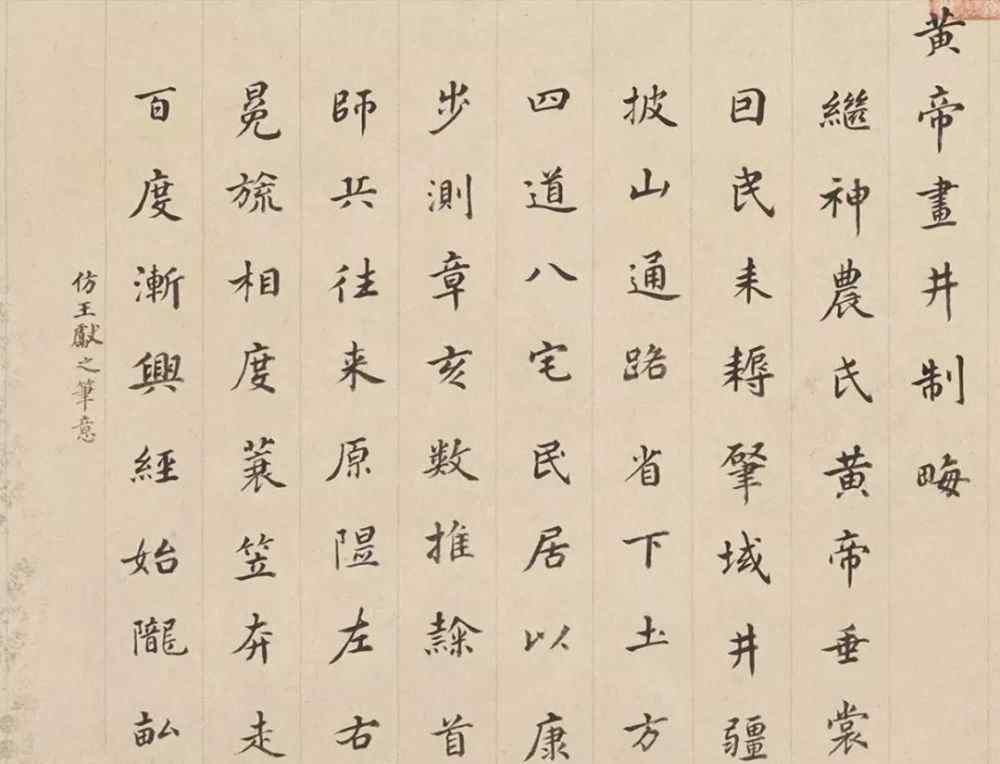 黄帝畫井制畮
繼神農氏黄帝垂裳
因民耒耨肇域井疆
披山通路省下土方
四道八宅民居以康
步測章亥数推隸首
師兵往来原隰左右
冕旒相度蓑笠奔走
百度漸興經始隴畝
仿王獻之筆意